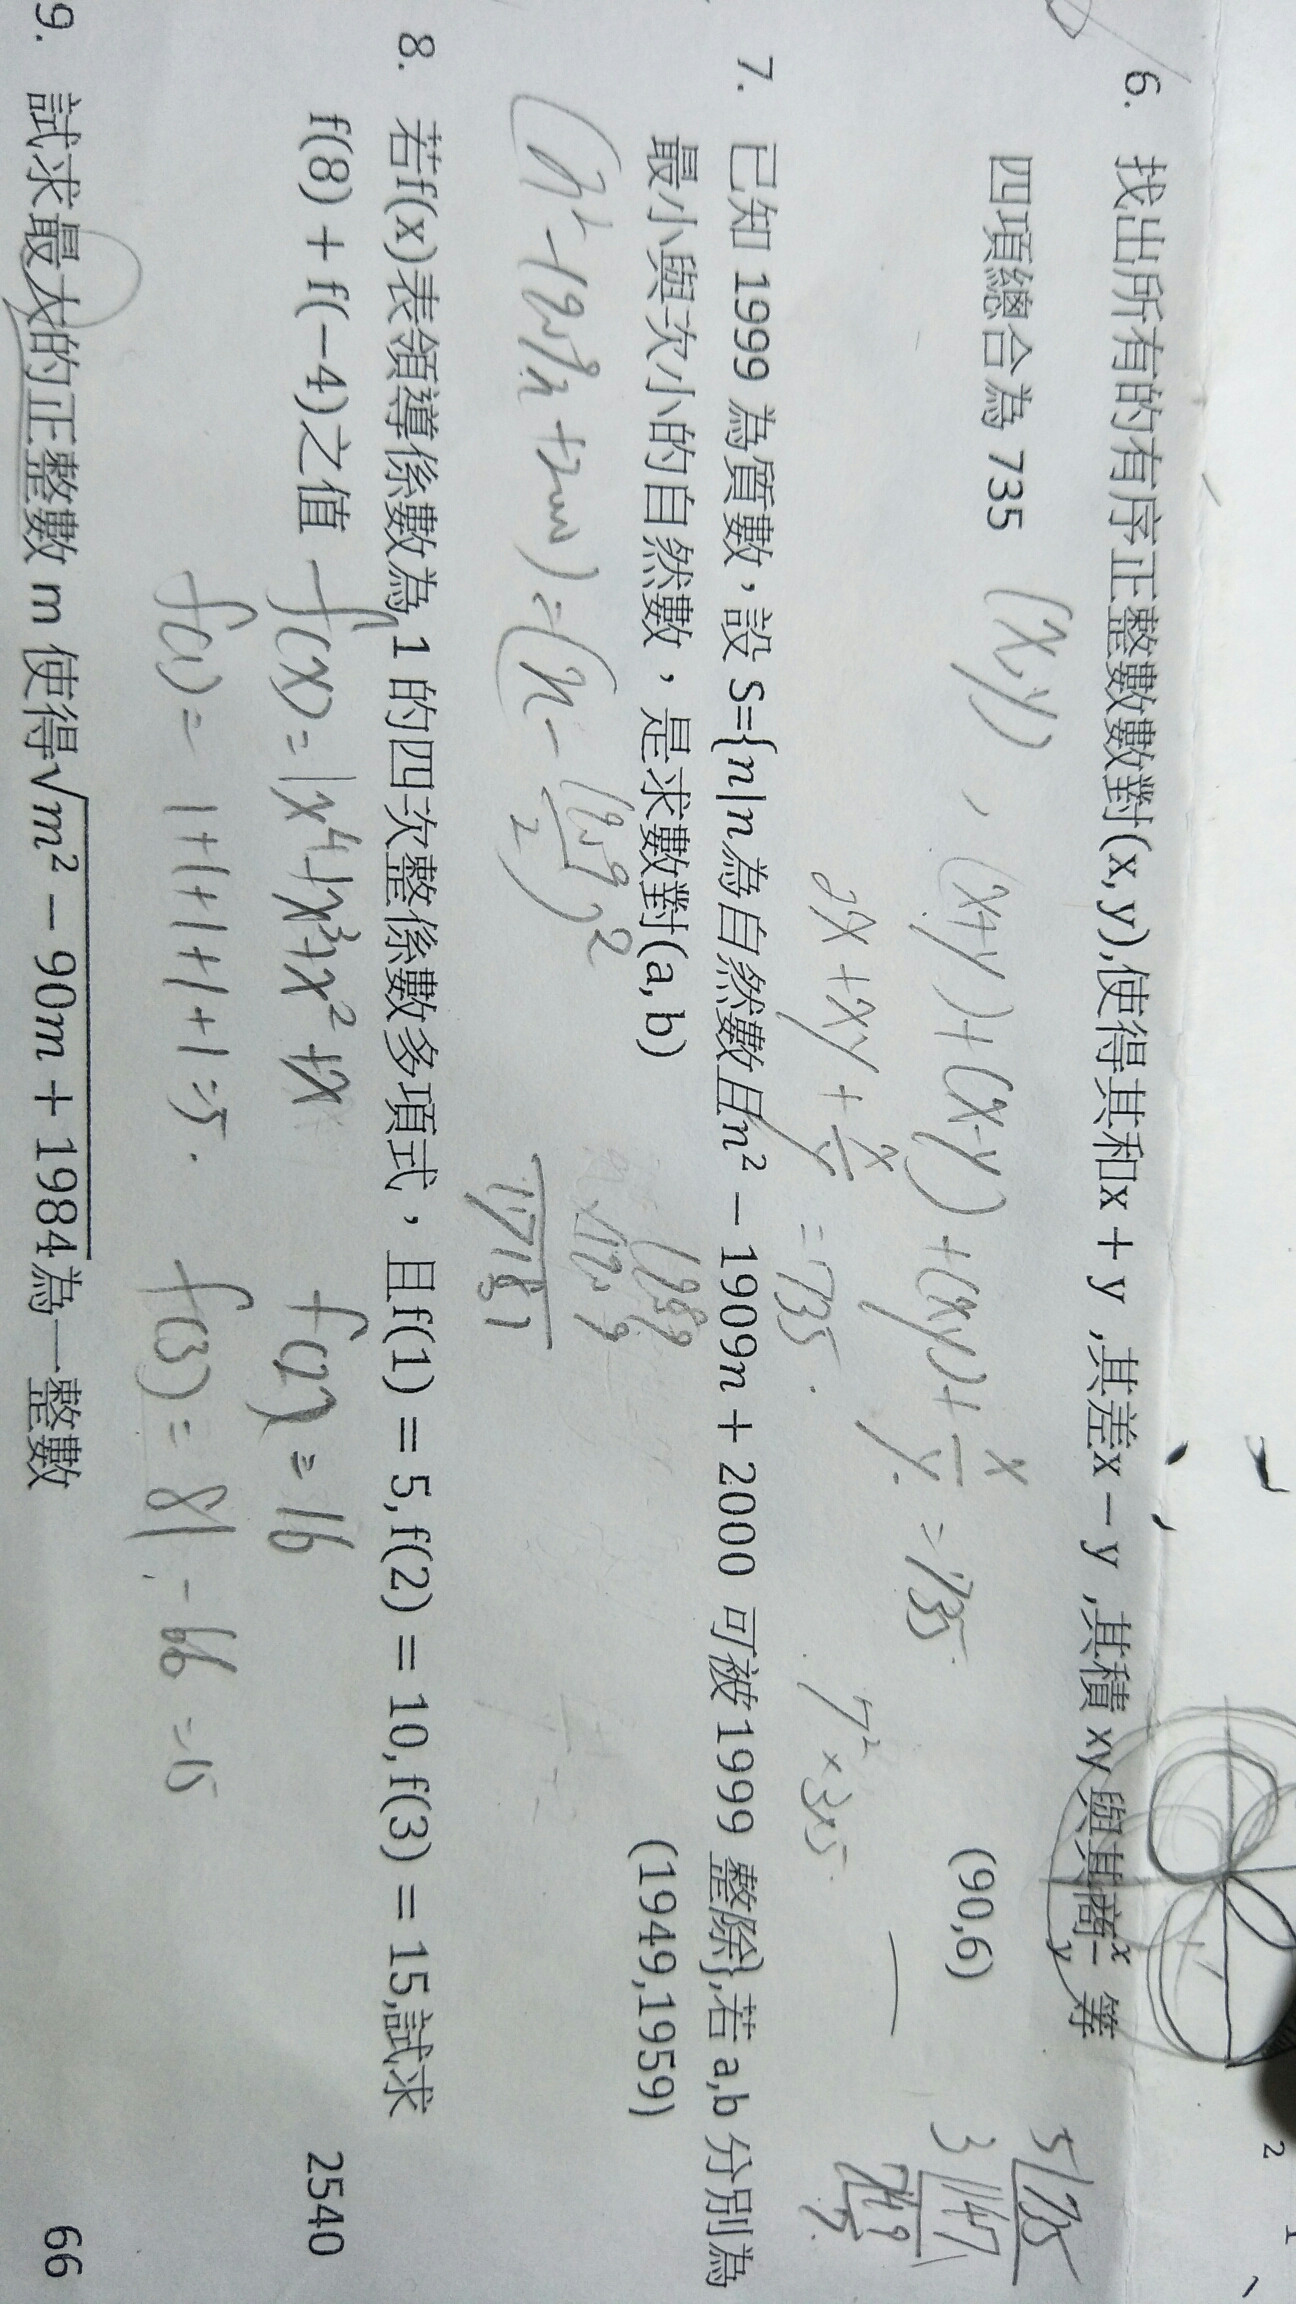 6. 找出所有的有序正整數數對(x,y),使得其和x + y ,其差x − y ,其積 xy 與其商x/y 等
四項總合為 735
(90,6)
(x,y), (x+y)+(x-y)+(xy)+x/y = 735
2x+xy+x/y = 735.
7²×3×5
7. 已知 1999 為質數,設 S={n|n為自然數且n² − 1909n + 2000 可被 1999 整除},若 a,b 分別為
最小與次小的自然數,是求數對(a,b)
(1949,1959)
8. 若f(x)表領導係數為 1 的四次整係數多項式,且f(1) = 5,f(2) = 10,f(3) = 15,試求
f(8) + f(−4)之值
2540
f(x)=1x⁴+x³+x²+x
f(2)=16
f(1)= 1+1+1+1+1=5.
f(3)= 81-66=15
9. 試求最大的正整數 m 使得√m² − 90m + 1984為一整數
66